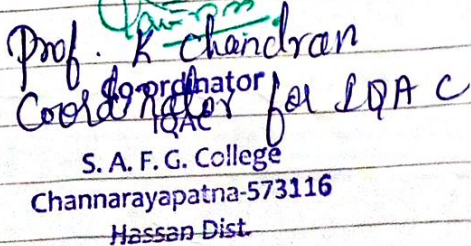 Prof. K Chandran
Co-ordinator
Coordinator for IQAC
IQAC
S. A. F. G. College
Channarayapatna-573116
Hassan Dist.